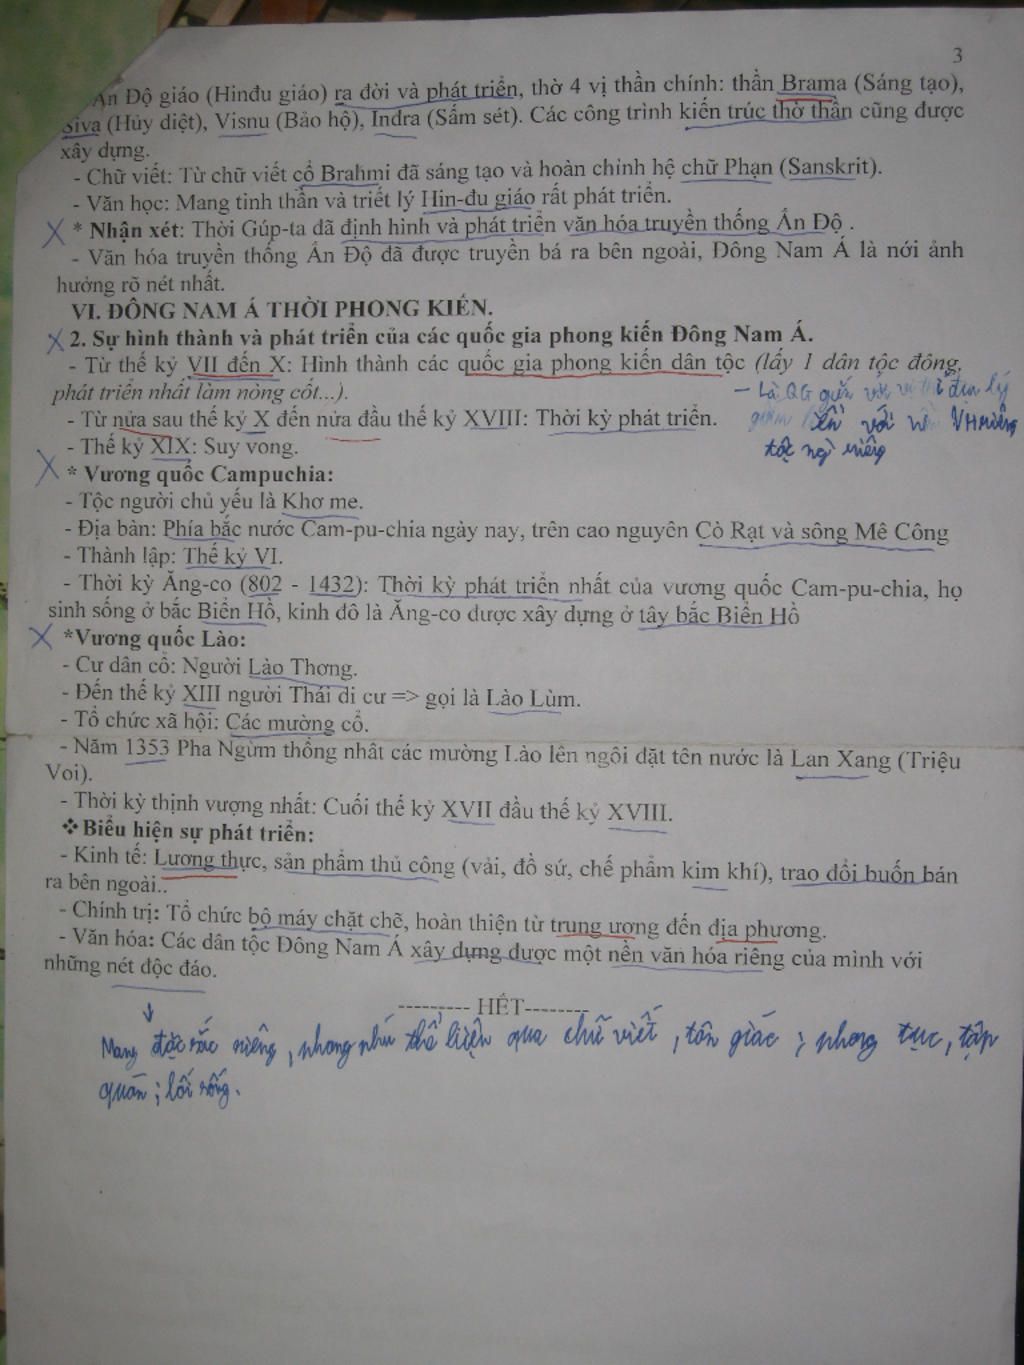 3
Ấn Độ giáo (Hinđu giáo) ra đời và phát triển, thờ 4 vị thần chính: thần Brama (Sáng tạo),
Siva (Hủy diệt), Visnu (Bảo hộ), Indra (Sấm sét). Các công trình kiến trúc thờ thần cũng được
xây dựng.
- Chữ viết: Từ chữ viết cổ Brahmi đã sáng tạo và hoàn chỉnh hệ chữ Phạn (Sanskrit).
- Văn học: Mang tinh thần và triết lý Hin-đu giáo rất phát triển.
* Nhận xét: Thời Gúp-ta đã định hình và phát triển văn hóa truyền thống Ấn Độ .
- Văn hóa truyền thống Ấn Độ đã được truyền bá ra bên ngoài, Đông Nam Á là nới ảnh
hưởng rõ nét nhất.
VI. ĐÔNG NAM Á THỜI PHONG KIẾN.
2. Sự hình thành và phát triển của các quốc gia phong kiến Đông Nam Á.
- Từ thế kỷ VII đến X: Hình thành các quốc gia phong kiến dân tộc (lấy 1 dân tộc đông,
phát triển nhất làm nòng cốt...).
- Là QG gắn với vị trí địa lý
- Từ nửa sau thế kỷ X đến nửa đầu thế kỷ XVIII: Thời kỳ phát triển.
liền với VH riêng
- Thế kỷ XIX: Suy vong.
riêng
* Vương quốc Campuchia:
- Tộc người chủ yếu là Khơ me.
- Địa bàn: Phía bắc nước Cam-pu-chia ngày nay, trên cao nguyên Cò Rạt và sông Mê Công
- Thành lập: Thế kỷ VI.
- Thời kỳ Ăng-co (802 - 1432): Thời kỳ phát triển nhất của vương quốc Cam-pu-chia, họ
sinh sống ở bắc Biển Hồ, kinh đô là Ăng-co được xây dựng ở tây bắc Biển Hồ
*Vương quốc Lào:
- Cư dân cổ: Người Lào Thơng.
- Đến thế kỷ XIII người Thái di cư => gọi là Lào Lùm.
- Tổ chức xã hội: Các mường cổ.
- Năm 1353 Pha Ngừm thống nhất các mường Lào lên ngôi đặt tên nước là Lan Xang (Triệu
Voi).
- Thời kỳ thịnh vượng nhất: Cuối thế kỷ XVII đầu thế kỷ XVIII.
❖ Biểu hiện sự phát triển:
- Kinh tế: Lương thực, sản phẩm thủ công (vải, đồ sứ, chế phẩm kim khí), trao đổi buốn bán
ra bên ngoài..
- Chính trị: Tổ chức bộ máy chặt chẽ, hoàn thiện từ trung ương đến địa phương.
- Văn hóa: Các dân tộc Đông Nam Á xây dựng được một nền văn hóa riêng của mình với
những nét độc đáo.
--------- HẾT--------
Mang đặc sắc riêng, phong phú thể hiện qua chữ viết, tôn giáo; phong tục, tập
quán; lối sống.